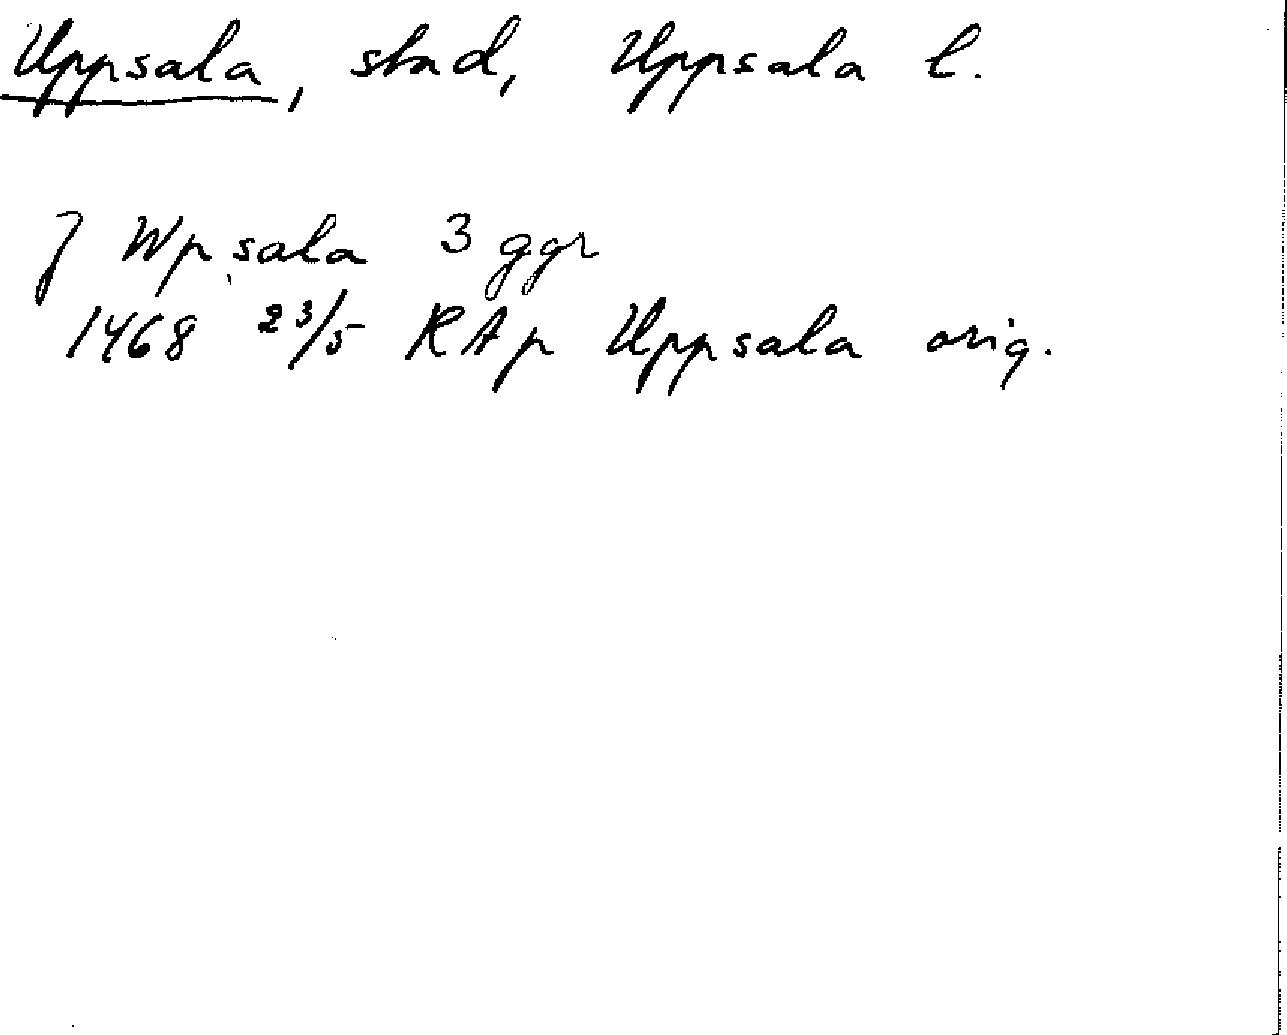 Uppsala, stad, Uppsala l.
J Wpsala 3 ggr
1468 23/5 RAp Uppsala orig.